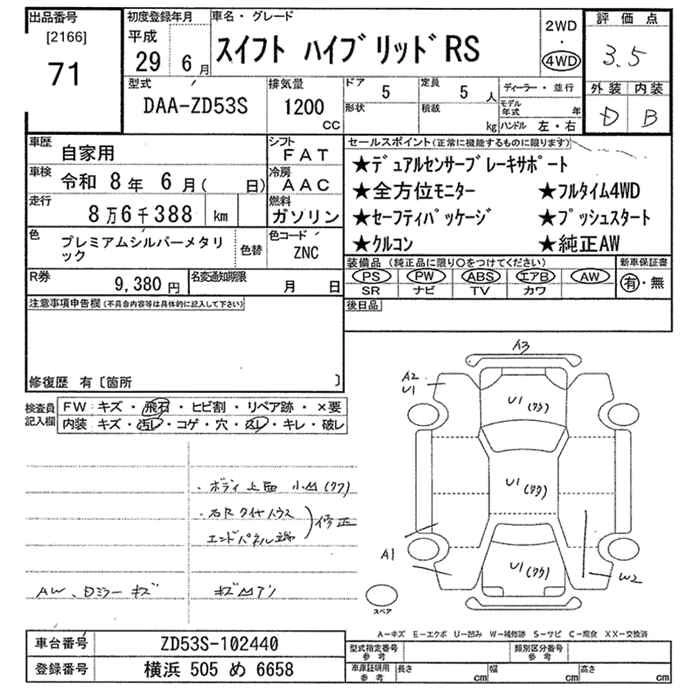 出品番号
[2166]
71
初度登録年月
平成
29 6月
車名・グレード
スイフト ハイブリッド RS
2WD
・
4WD
評価点
3.5
外装 内装
D B
型式
DAA-ZD53S
排気量
1200
CC
ドア
5
形状
定員
5 人
積載
kg
ディーラー・並行
モデル年式 年
ハンドル 左・右
車歴
自家用
シフト
FAT
車検
令和 8年 6月( 日)
冷房
AAC
走行
8万6千388 km
燃料
ガソリン
色
プレミアムシルバーメタリック
色替
色コード
ZNC
セールスポイント(正常に機能するものに限ります)
★デュアルセンサーブレーキサポート
★全方位モニター ★フルタイム4WD
★セーフティパッケージ ★プッシュスタート
★クルコン ★純正AW
装備品 (純正品に限り○をつけてください)
PS PW ABS エアB AW
SR ナビ TV カワ
新車保証書
有・無
R券
9,380 円
名変通知期限
月 日
後日品
注意事項申告欄(不具合内容等は具体的に記入して下さい)
修復歴 有〔箇所 〕
検査員記入欄
FW: キズ・飛石・ヒビ割・リペア跡・×要
内装: キズ・汚レ・コゲ・穴・スレ・キレ・破レ
・ボディ上面 小凹(ワワ)
・右R タイヤハウス
エンドパネル端
修正
AW、Dミラー キズ
キズ凹アリ
A3
A2
U1
U1(ワワ)
U1(ワワ)
U1(ワワ)
A1
W2
スペア
A-キズ E-エクボ U-凹み W-補修跡 S-サビ C-腐食 XX-交換済
車台番号
ZD53S-102440
登録番号
横浜 505 め 6658
型式指定番号
参考
類別区分番号
参考
車庫証明用
参考
長さ cm
幅 cm
高さ cm